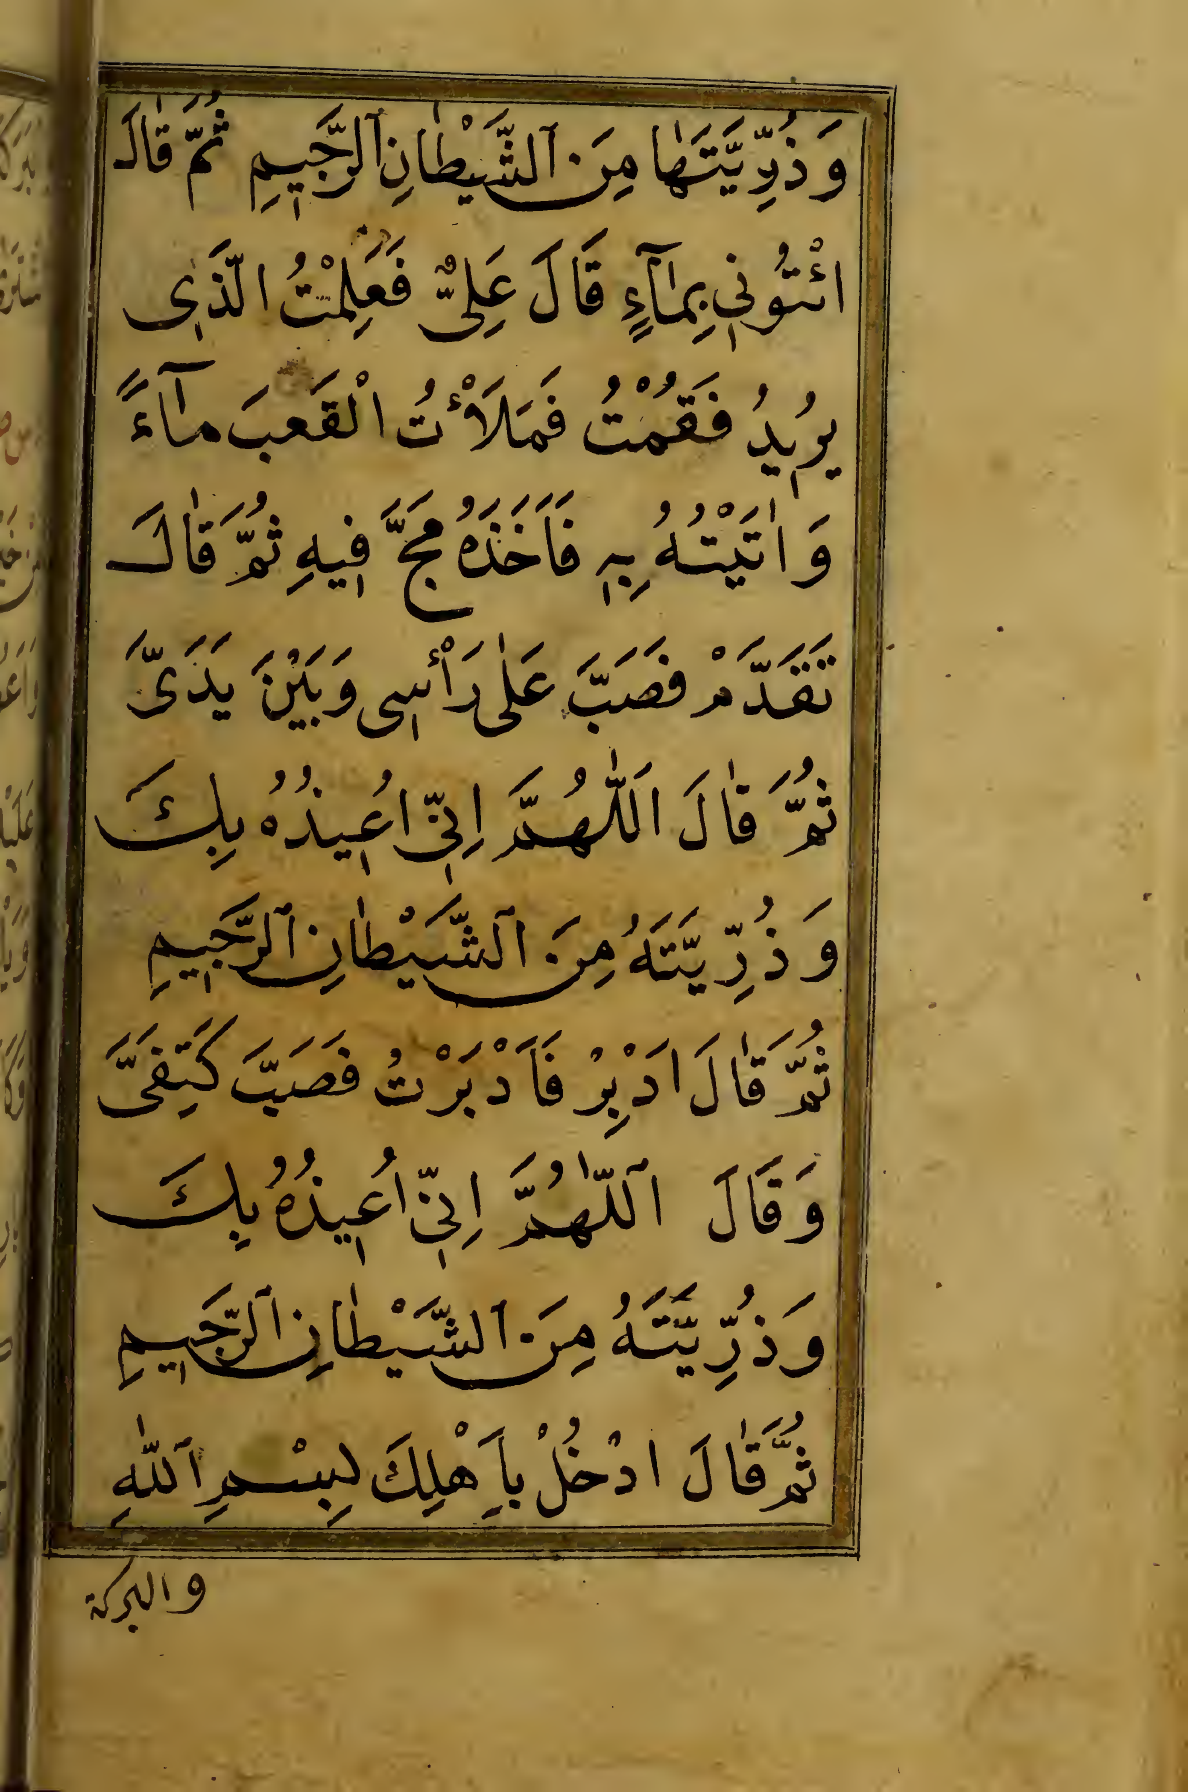 وَذُرِّيَّتَهَا مِنَ ٱلشَّيْطَانِ ٱلرَّجِيمِ ثُمَّ قَالَ
ائْتُونِي بِمَآءٍ قَالَ عَلِيٌّ فَعَلِمْتُ الَّذِى
يُرِيدُ فَقُمْتُ فَمَلَأْتُ الْقَعبَ مَآءً
وَاَتَيْتُهُ بِهِ فَاَخَذَهُ مَجَّ فِيهِ ثُمَّ قَالَ
تَقَدَّمْ فَصَبَّ عَلٰى رَأْسِى وَبَيْنَ يَدَىَّ
ثُمَّ قَالَ اَللّٰهُمَّ اِنِّى اُعِيذُهُ بِكَ
وَذُرِّيَّتَهُ مِنَ ٱلشَّيْطَانِ ٱلرَّجِيمِ
ثُمَّ قَالَ اَدْبِرْ فَاَدْبَرْتُ فَصَبَّ كَتِفَىَّ
وَقَالَ اَللّٰهُمَّ اِنِّى اُعِيذُهُ بِكَ
وَذُرِّيَّتَهُ مِنَ ٱلشَّيْطَانِ ٱلرَّجِيمِ
ثُمَّ قَالَ ادْخُلْ بِاَهْلِكَ بِسْمِ ٱللّٰهِ
والبركة